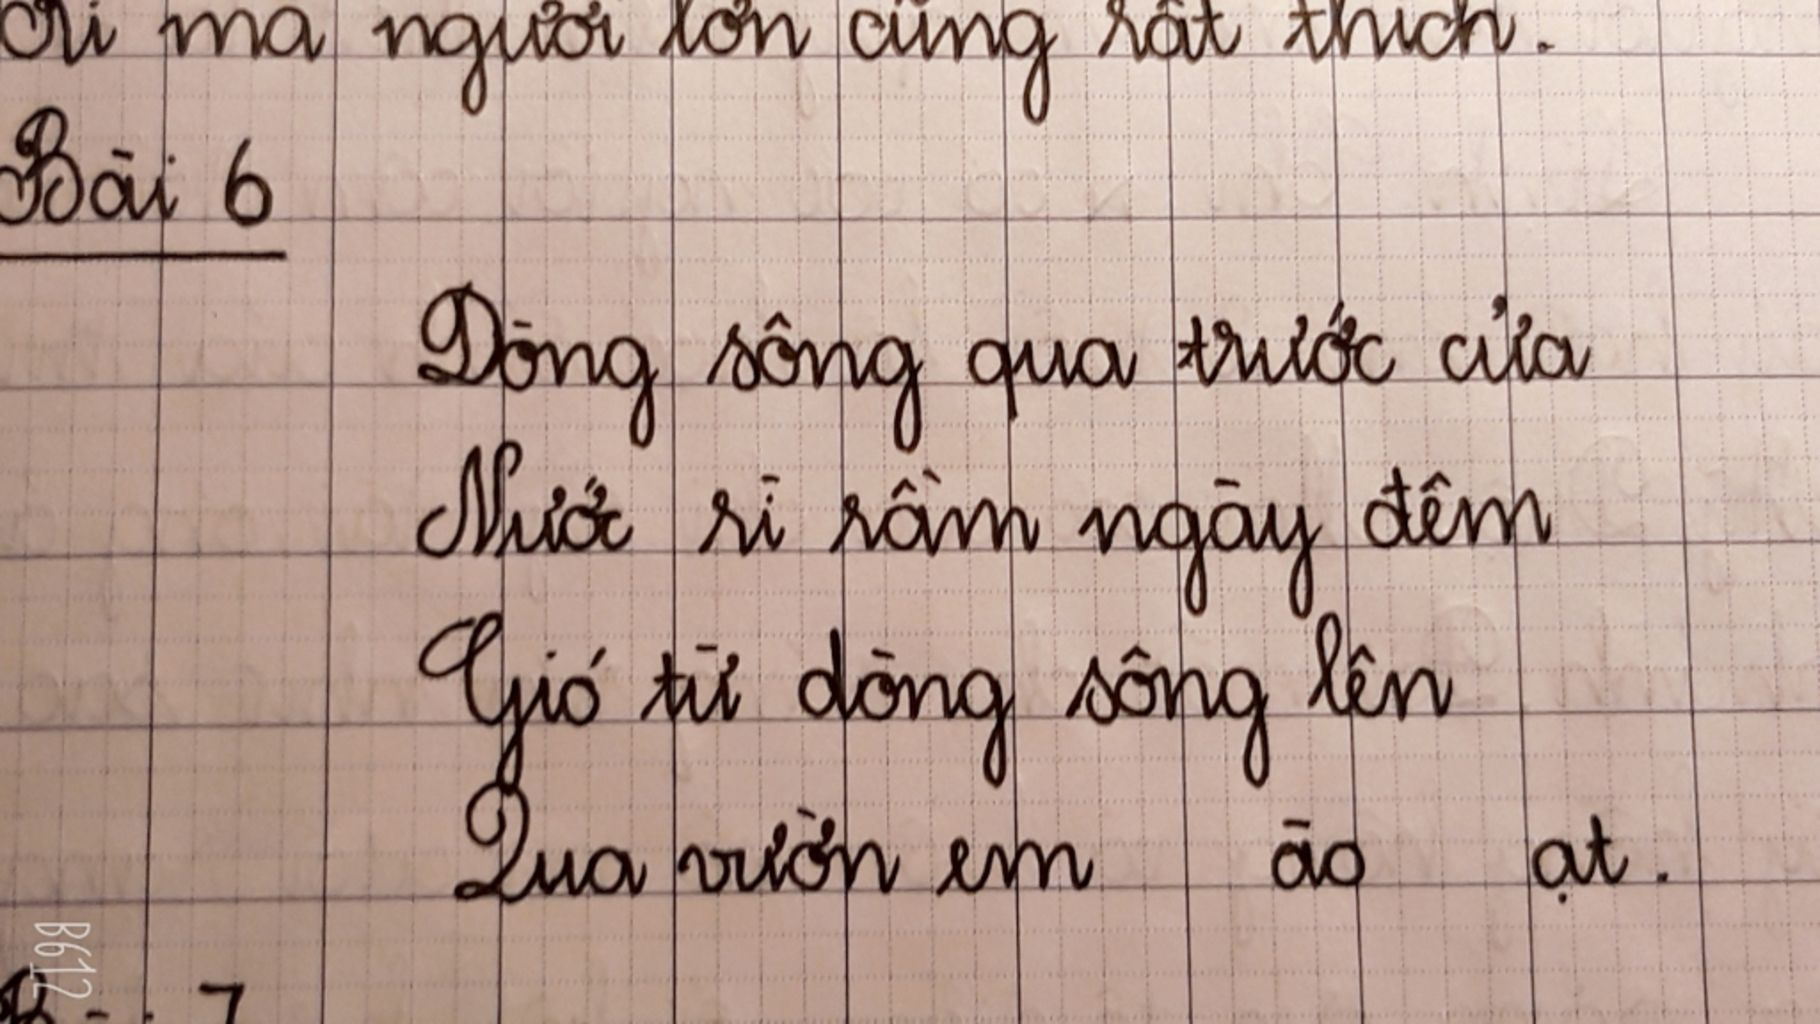 mà người lớn cũng rất thích.
Bài 6
Dòng sông qua trước cửa
Nước rì rầm ngày đêm
Gió từ dòng sông lên
Qua vườn em ào ạt.
B612
7